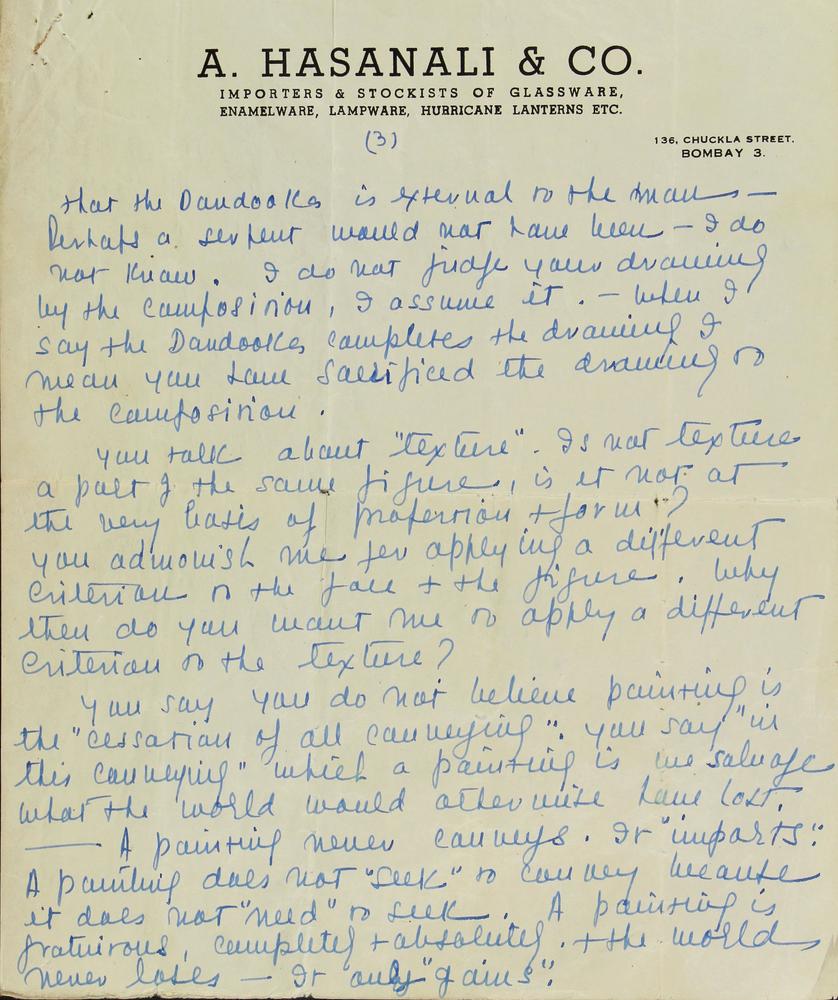 A. HASANALI & CO.
IMPORTERS & STOCKISTS OF GLASSWARE,
ENAMELWARE, LAMPWARE, HURRICANE LANTERNS ETC.
(3)
136, CHUCKLA STREET.
BOMBAY 3.
that the Dandooka is external to the man —
Perhaps a serpent would not have been – I do
not know. I do not judge your drawing
by the composition, I assume it. – When I
say the Dandooka completes the drawing I
mean you have sacrificed the drawing to
the composition.
You talk about "texture". Is not texture
a part of the same figure, is it not at
the very basis of proportion + form?
You admonish me for applying a different
criterion to the face + the figure. Why
then do you want me to apply a different
criterion to the texture?
You say you do not believe painting is
the "cessation of all conveying". You say "in
this conveying" which a painting is we salvage
what the world would otherwise have lost.
— A painting never conveys. It "imparts".
A painting does not "seek" to convey because
it does not "need" to seek. A painting is
gratuitous, completely + absolutely. + the world
never loses — It only "gains".